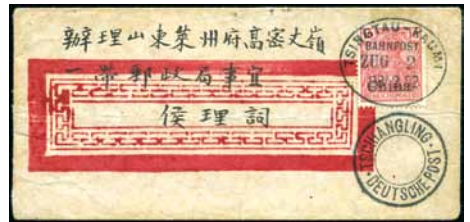 辦理山東萊州府高密丈嶺
一帶郵政局事宜
侯理詞
TSINGTAU-KAUMI
BAHNPOST
ZUG 2
China
TSCHANGLING
DEUTSCHE POST